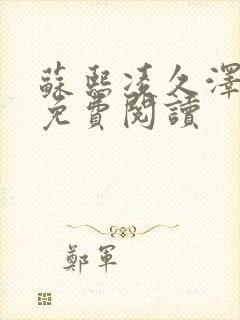 蘇熙凌久澤
免費閱讀
鄭軍